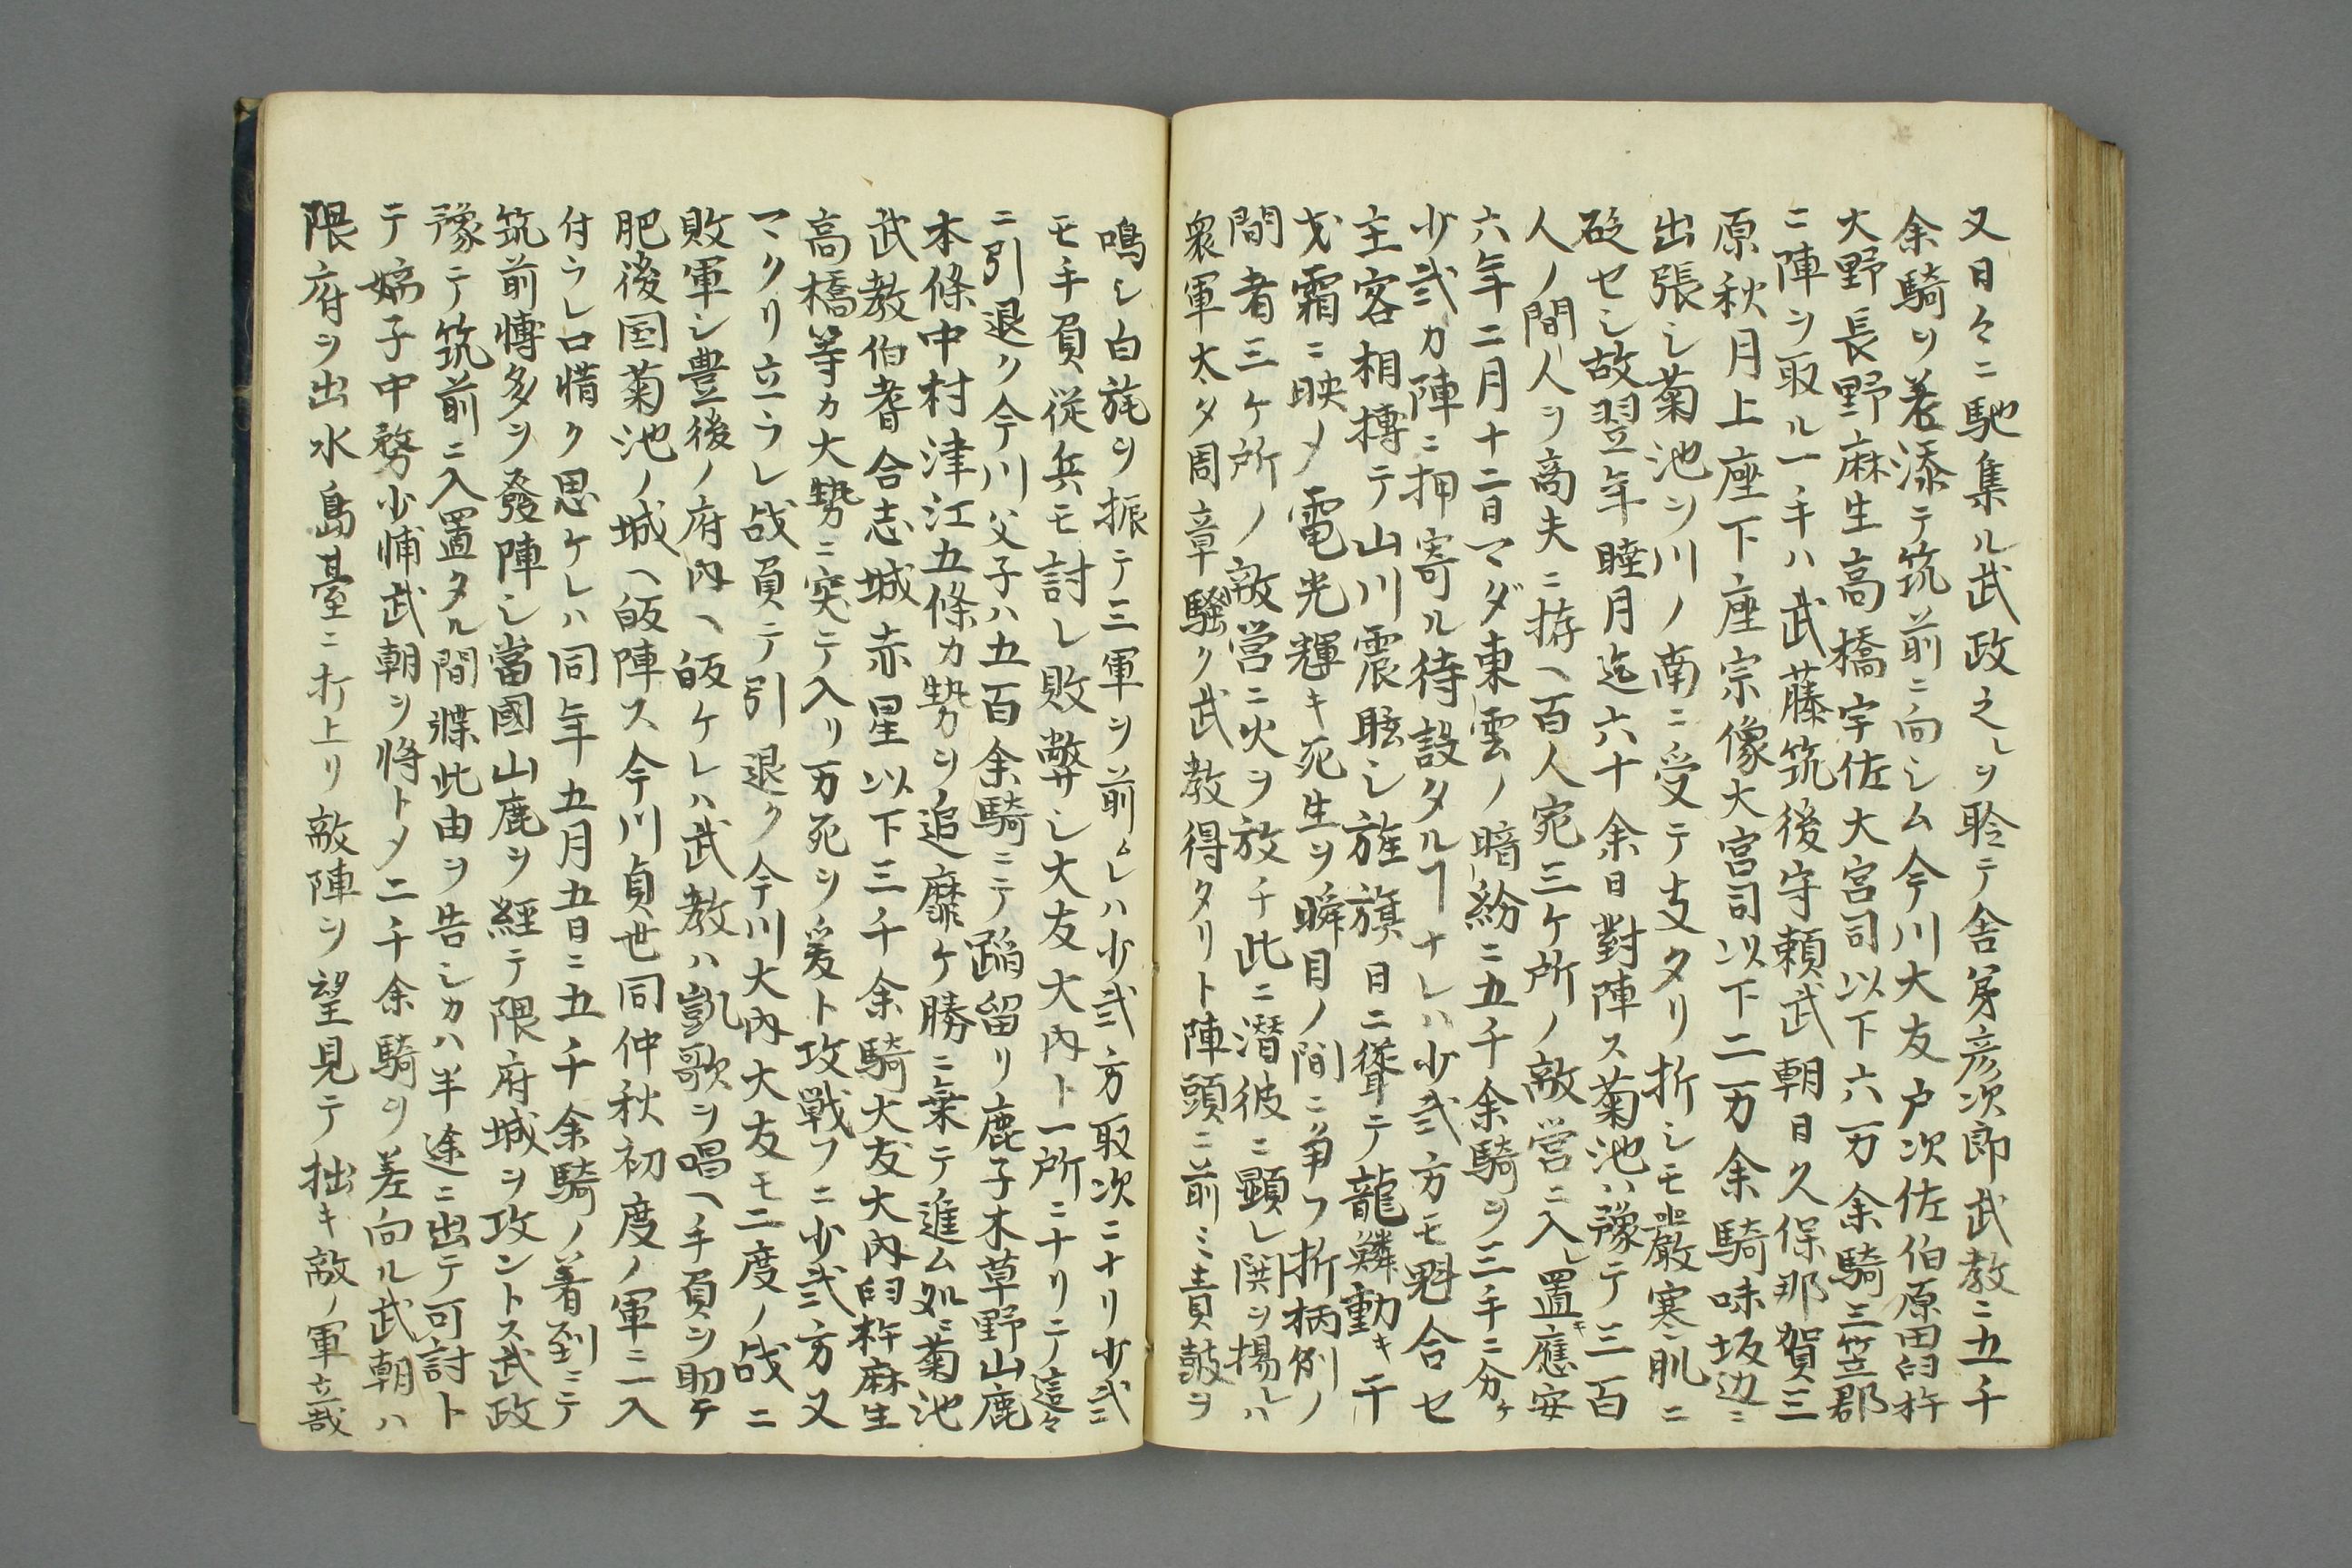 又日々ニ馳集ル武政之レヲ聆テ舎弟彦次郎武教ニ五千
余騎ヲ差添テ筑前ニ向シム今川大友戸次佐伯原田臼杵
大野長野麻生高橋宇佐大宮司以下六万余騎三笠郡
ニ陣ヲ取ル一手ハ武藤筑後守頼武朝日久保那賀三
原秋月上座下座宗像大宮司以下二万余騎味坂辺ニ
出張シ菊池ヲ川ノ南ニ受テ支タリ折シモ嚴寒ニ肌ニ
砭セシ故翌年睦月迄六十余日對陣ス菊池ハ豫テ三百
人ノ間人ヲ商夫ニ拵ヘ百人宛三ケ所ノ敵営ニ入レ置キ應安
六年二月十二日マダ東雲ノ暗紛ニ五千余騎ヲ三手ニ分ケ
少弐カ陣ニ押寄ル待設タルヿナレハ少弐方モ魁合セ
主客相搏テ山川震眩シ旌旗日ニ聳テ龍鱗動キ干
戈霜ニ映メ電光輝キ死生ヲ瞬目ノ間ニ争フ折柄例ノ
間者三ケ所ノ敵営ニ火ヲ放チ此ニ潜彼ニ顕レ鬨ヲ揚レハ
衆軍大タ周章騒ク武教得タリト陣頭ニ前ミ責鼓ヲ
鳴シ白旄ヲ振テ三軍ヲ前ムレハ少弐方取次ニナリ少弐
モ手負従兵モ討レ敗弊シ大友大内ト一所ニナリニテ這々
ニ引退ク今川父子ハ五百余騎ニテ蹈留リ鹿子木草野山鹿
本條中村津江五條カ勢ヲ追靡ケ勝ニ乗テ進ム処ニ菊池
武教伯耆合志城赤星以下三千余騎大友大内臼杵麻生
高橋等カ大勢ニ突テ入リ万死ヲ爰ト攻戦フニ少弐方又
マクリ立ラレ战負テ引退ク今川大内大友モ二度ノ战ニ
敗軍シ豊後ノ府内ヘ皈ケレハ武教ハ凱歌ヲ唱ヘ手負ヲ助テ
肥後国菊池ノ城ヘ皈陣ス今川貞世同仲秋初度ノ軍ニ入
付ラレ口惜ク思ケレハ同年五月五日ニ五千余騎ノ着到ニテ
筑前博多ヲ發陣シ當國山鹿ヲ経テ隈府城ヲ攻ントス武政
豫テ筑前ニ入置タル間牒此由ヲ告シカハ半途ニ出テ可討ト
テ嫡子中務少輔武朝ヲ将トメ二千余騎ヲ差向ル武朝ハ
隈府ヲ出水島臺ニ打上リ敵陣ヲ望見テ拙キ敵ノ軍立哉